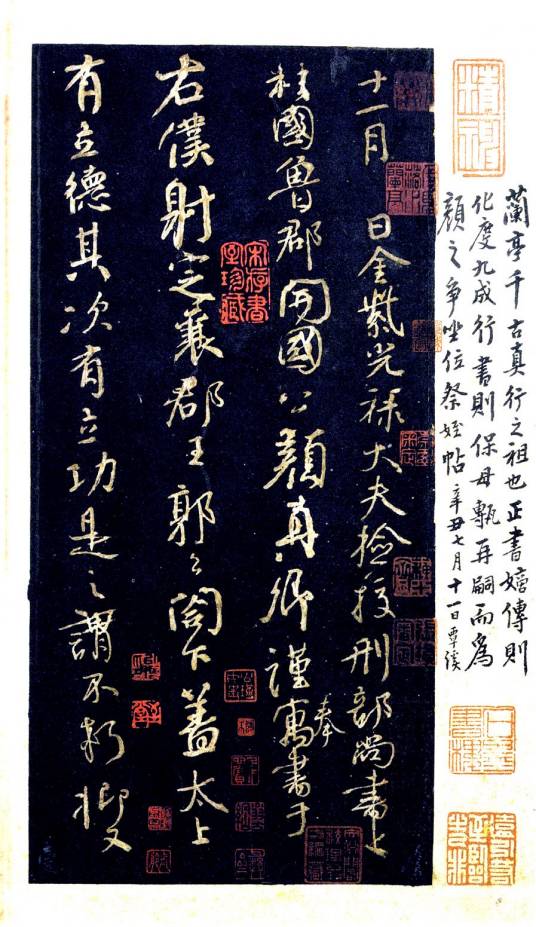 蘭亭千古真行之祖也正書嫡傳則
化度九成行書則保母甎再嗣而為
顏之爭坐位祭姪帖 辛丑七月十一日覃溪
十一月 日金紫光祿大夫撿挍刑部尚書上
柱國魯郡開國公顏真卿謹奉寓書于
右僕射定襄郡王郭公閤下蓋太上
有立德其次有立功是之謂不朽抑又
宋存書室珍藏